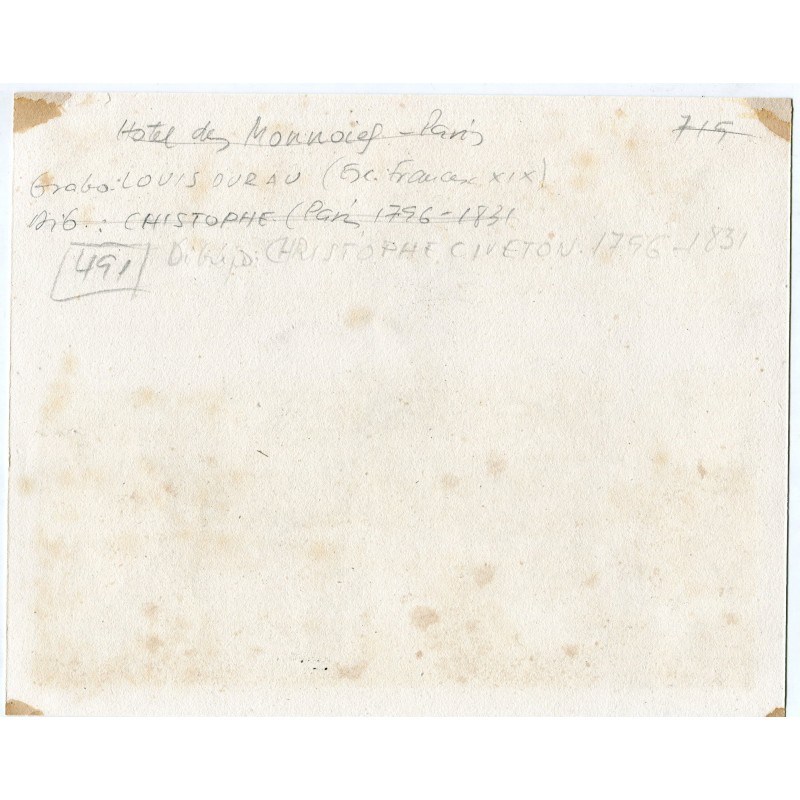 Hotel des Monnaies - Paris 719
Grabo: LOUIS DUREAU (Esc. Francesa XIX)
Dib.: CHISTOPHE (Paris 1796-1831
491 Dibujo: CHRISTOPHE CIVETON. 1796-1831